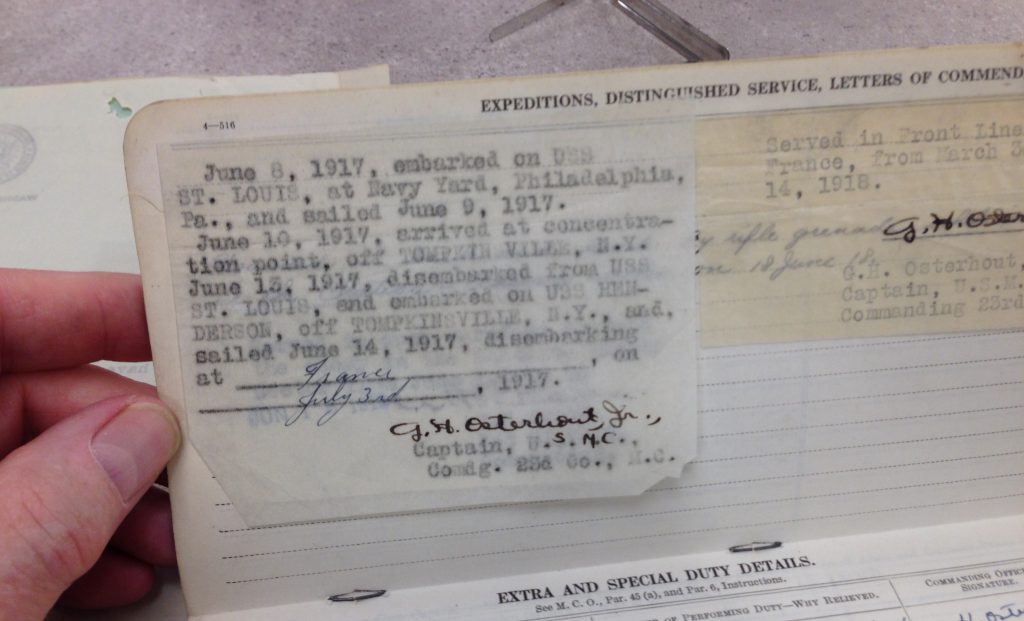 EXPEDITIONS, DISTINGUISHED SERVICE, LETTERS OF COMMEND
4—516
June 8, 1917, embarked on USS
ST. LOUIS, at Navy Yard, Philadelphia,
Pa., and sailed June 9, 1917.
June 10, 1917, arrived at concentra-
tion point, off TOMPKIN VILLE, N.Y.
June 13, 1917, disembarked from USS
ST. LOUIS, and embarked on USS HEN-
DERSON, off TOMPKINSVILLE, N.Y., and,
sailed June 14, 1917, disembarking
at France, on
July 3rd, 1917.
G. H. Osterhout, Jr.,
Captain, U.S.M.C.,
Comdg. 23d Co., M.C.
Served in Front Line
France, from March
14, 1918.
rifle grenad
on 18 June
G. H. Oster
G.H. Osterhout,
Captain, U.S.M.
Commanding 23rd
EXTRA AND SPECIAL DUTY DETAILS.
See M. C. O., Par. 45 (a), and Par. 6, Instructions.
OF PERFORMING DUTY—WHY RELIEVED.
COMMANDING OFFIC
SIGNATURE.